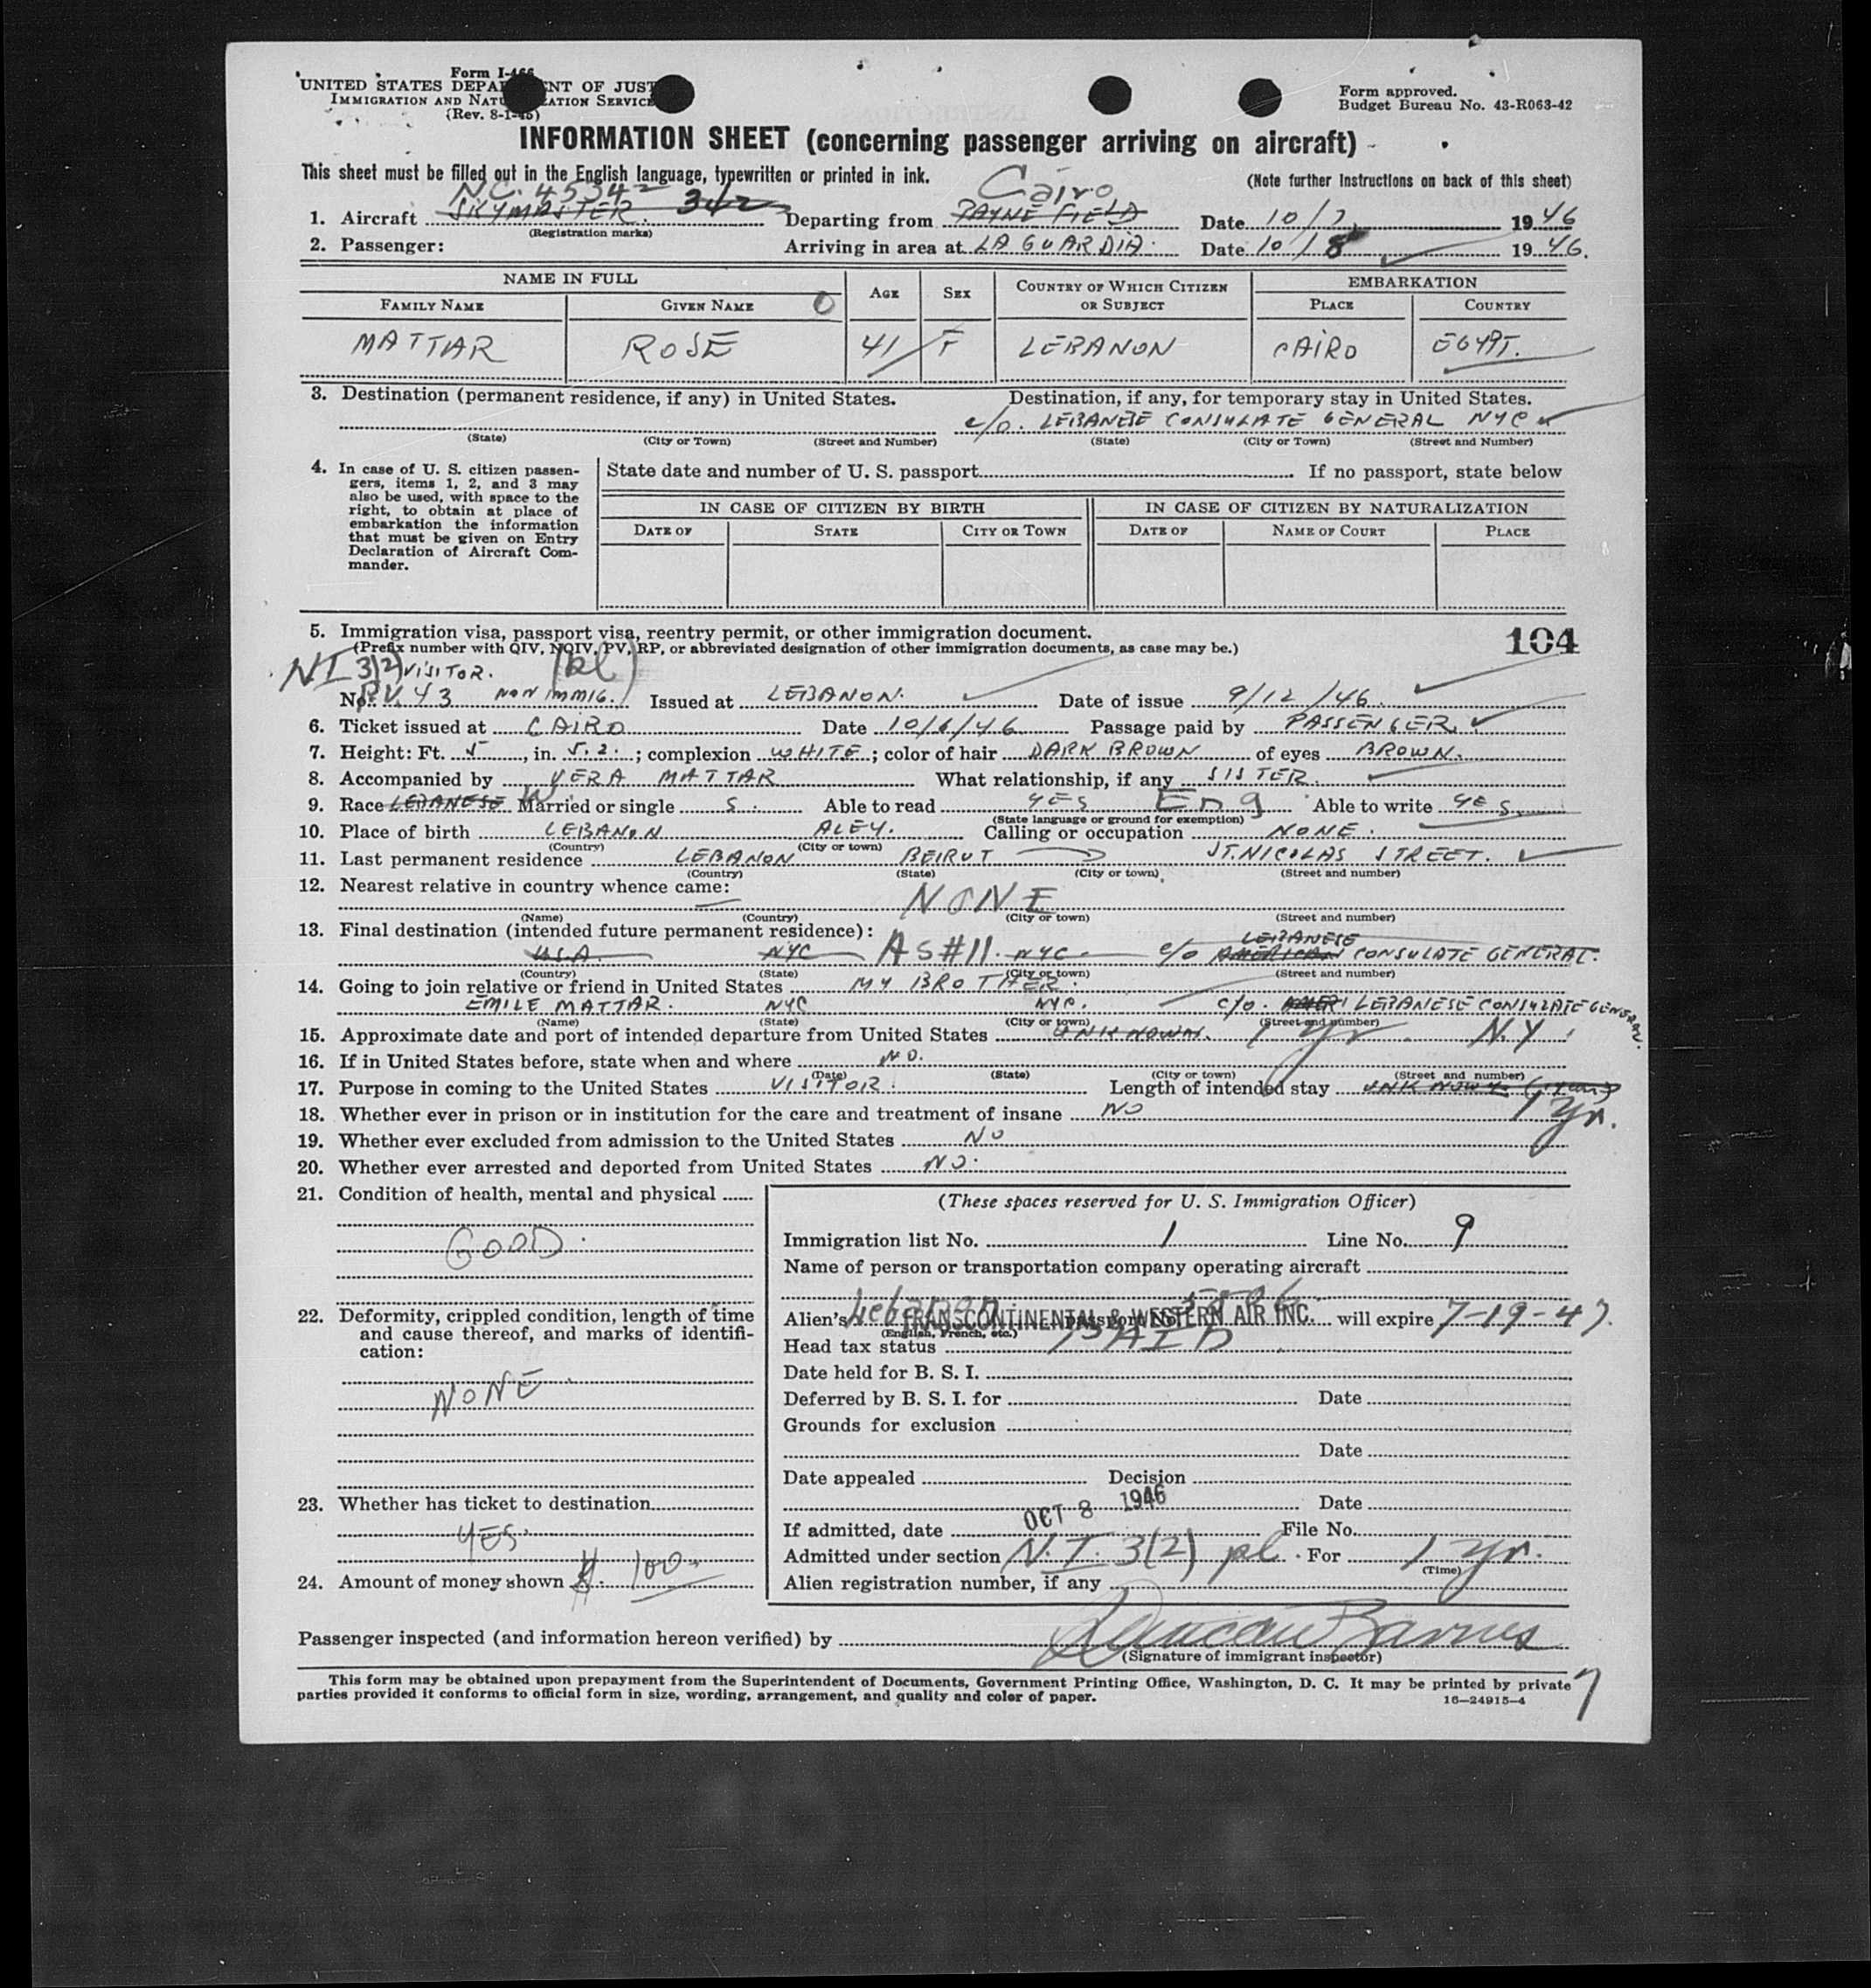 Form I-466
UNITED STATES DEPARTMENT OF JUSTICE
IMMIGRATION AND NATURALIZATION SERVICE
(Rev. 8-1-45)
Form approved.
Budget Bureau No. 43-R063-42
INFORMATION SHEET (concerning passenger arriving on aircraft)
This sheet must be filled out in the English language, typewritten or printed in ink.
(Note further instructions on back of this sheet)
N.C. 45342 Cairo
1. Aircraft SKYMASTER. 342 Departing from PAYNE FIELD Date 10/7 1946
(Registration marks)
2. Passenger: Arriving in area at LA GUARDIA. Date 10/8 1946.
NAME IN FULL AGE SEX COUNTRY OF WHICH CITIZEN OR SUBJECT EMBARKATION
FAMILY NAME GIVEN NAME PLACE COUNTRY
MATTAR ROSE 41 F LEBANON CAIRO EGYPT.
3. Destination (permanent residence, if any) in United States. Destination, if any, for temporary stay in United States.
c/o. LEBANESE CONSULATE GENERAL NYC
(State) (City or Town) (Street and Number) (State) (City or Town) (Street and Number)
4. In case of U. S. citizen passen-
gers, items 1, 2, and 3 may
also be used, with space to the
right, to obtain at place of
embarkation the information
that must be given on Entry
Declaration of Aircraft Com-
mander.
State date and number of U. S. passport If no passport, state below
IN CASE OF CITIZEN BY BIRTH IN CASE OF CITIZEN BY NATURALIZATION
DATE OF STATE CITY OR TOWN DATE OF NAME OF COURT PLACE
5. Immigration visa, passport visa, reentry permit, or other immigration document.
104
(Prefix number with QIV, NQIV, PV, RP, or abbreviated designation of other immigration documents, as case may be.)
NI 3(2) VISITOR. (pl)
No. P.V. 43 NON IMMIG. Issued at LEBANON. Date of issue 9/12/46.
6. Ticket issued at CAIRO Date 10/6/46 Passage paid by PASSENGER.
7. Height: Ft. 5, in. 5.2.; complexion WHITE; color of hair DARK BROWN of eyes BROWN.
8. Accompanied by VERA MATTAR What relationship, if any SISTER.
9. Race LEBANESE W Married or single S. Able to read YES Eng Able to write YES
(State language or ground for exemption)
10. Place of birth LEBANON ALEY. Calling or occupation NONE.
(Country) (City or town)
11. Last permanent residence LEBANON BEIRUT ST. NICOLAS STREET.
(Country) (State) (City or town) (Street and number)
12. Nearest relative in country whence came:
NONE
(Name) (Country) (City or town) (Street and number)
13. Final destination (intended future permanent residence):
LEBANESE
U.S.A. NYC AS #11. NYC. c/o AMERICAN CONSULATE GENERAL.
(Country) (State) (City or town) (Street and number)
14. Going to join relative or friend in United States MY BROTHER.
EMILE MATTAR. NYC NYC. c/o. AMERI LEBANESE CONSULATE GENERAL.
(Name) (State) (City or town) (Street and number)
15. Approximate date and port of intended departure from United States UNKNOWN. 1 yr. N.Y.
16. If in United States before, state when and where NO.
(Date) (State) (City or town) (Street and number)
17. Purpose in coming to the United States VISITOR. Length of intended stay UNKNOWN (1 year)
1 yr.
18. Whether ever in prison or in institution for the care and treatment of insane NO
19. Whether ever excluded from admission to the United States NO
20. Whether ever arrested and deported from United States NO.
21. Condition of health, mental and physical
GOOD.
22. Deformity, crippled condition, length of time
and cause thereof, and marks of identifi-
cation:
NONE.
23. Whether has ticket to destination
YES.
24. Amount of money shown $. 100.
(These spaces reserved for U. S. Immigration Officer)
Immigration list No. 1 Line No. 9
Name of person or transportation company operating aircraft
TRANSCONTINENTAL & WESTERN AIR INC.
Alien's Lebanon passport No. will expire 7-19-47.
(English, French, etc.)
Head tax status PAID
Date held for B. S. I.
Deferred by B. S. I. for Date
Grounds for exclusion
Date
Date appealed Decision
Date
If admitted, date OCT 8 1946 File No.
Admitted under section N.I. 3(2) pl. For 1 yr.
(Time)
Alien registration number, if any
Passenger inspected (and information hereon verified) by Duncan Barnes
(Signature of immigrant inspector)
This form may be obtained upon prepayment from the Superintendent of Documents, Government Printing Office, Washington, D. C. It may be printed by private
parties provided it conforms to official form in size, wording, arrangement, and quality and color of paper.
16—24915-4
7